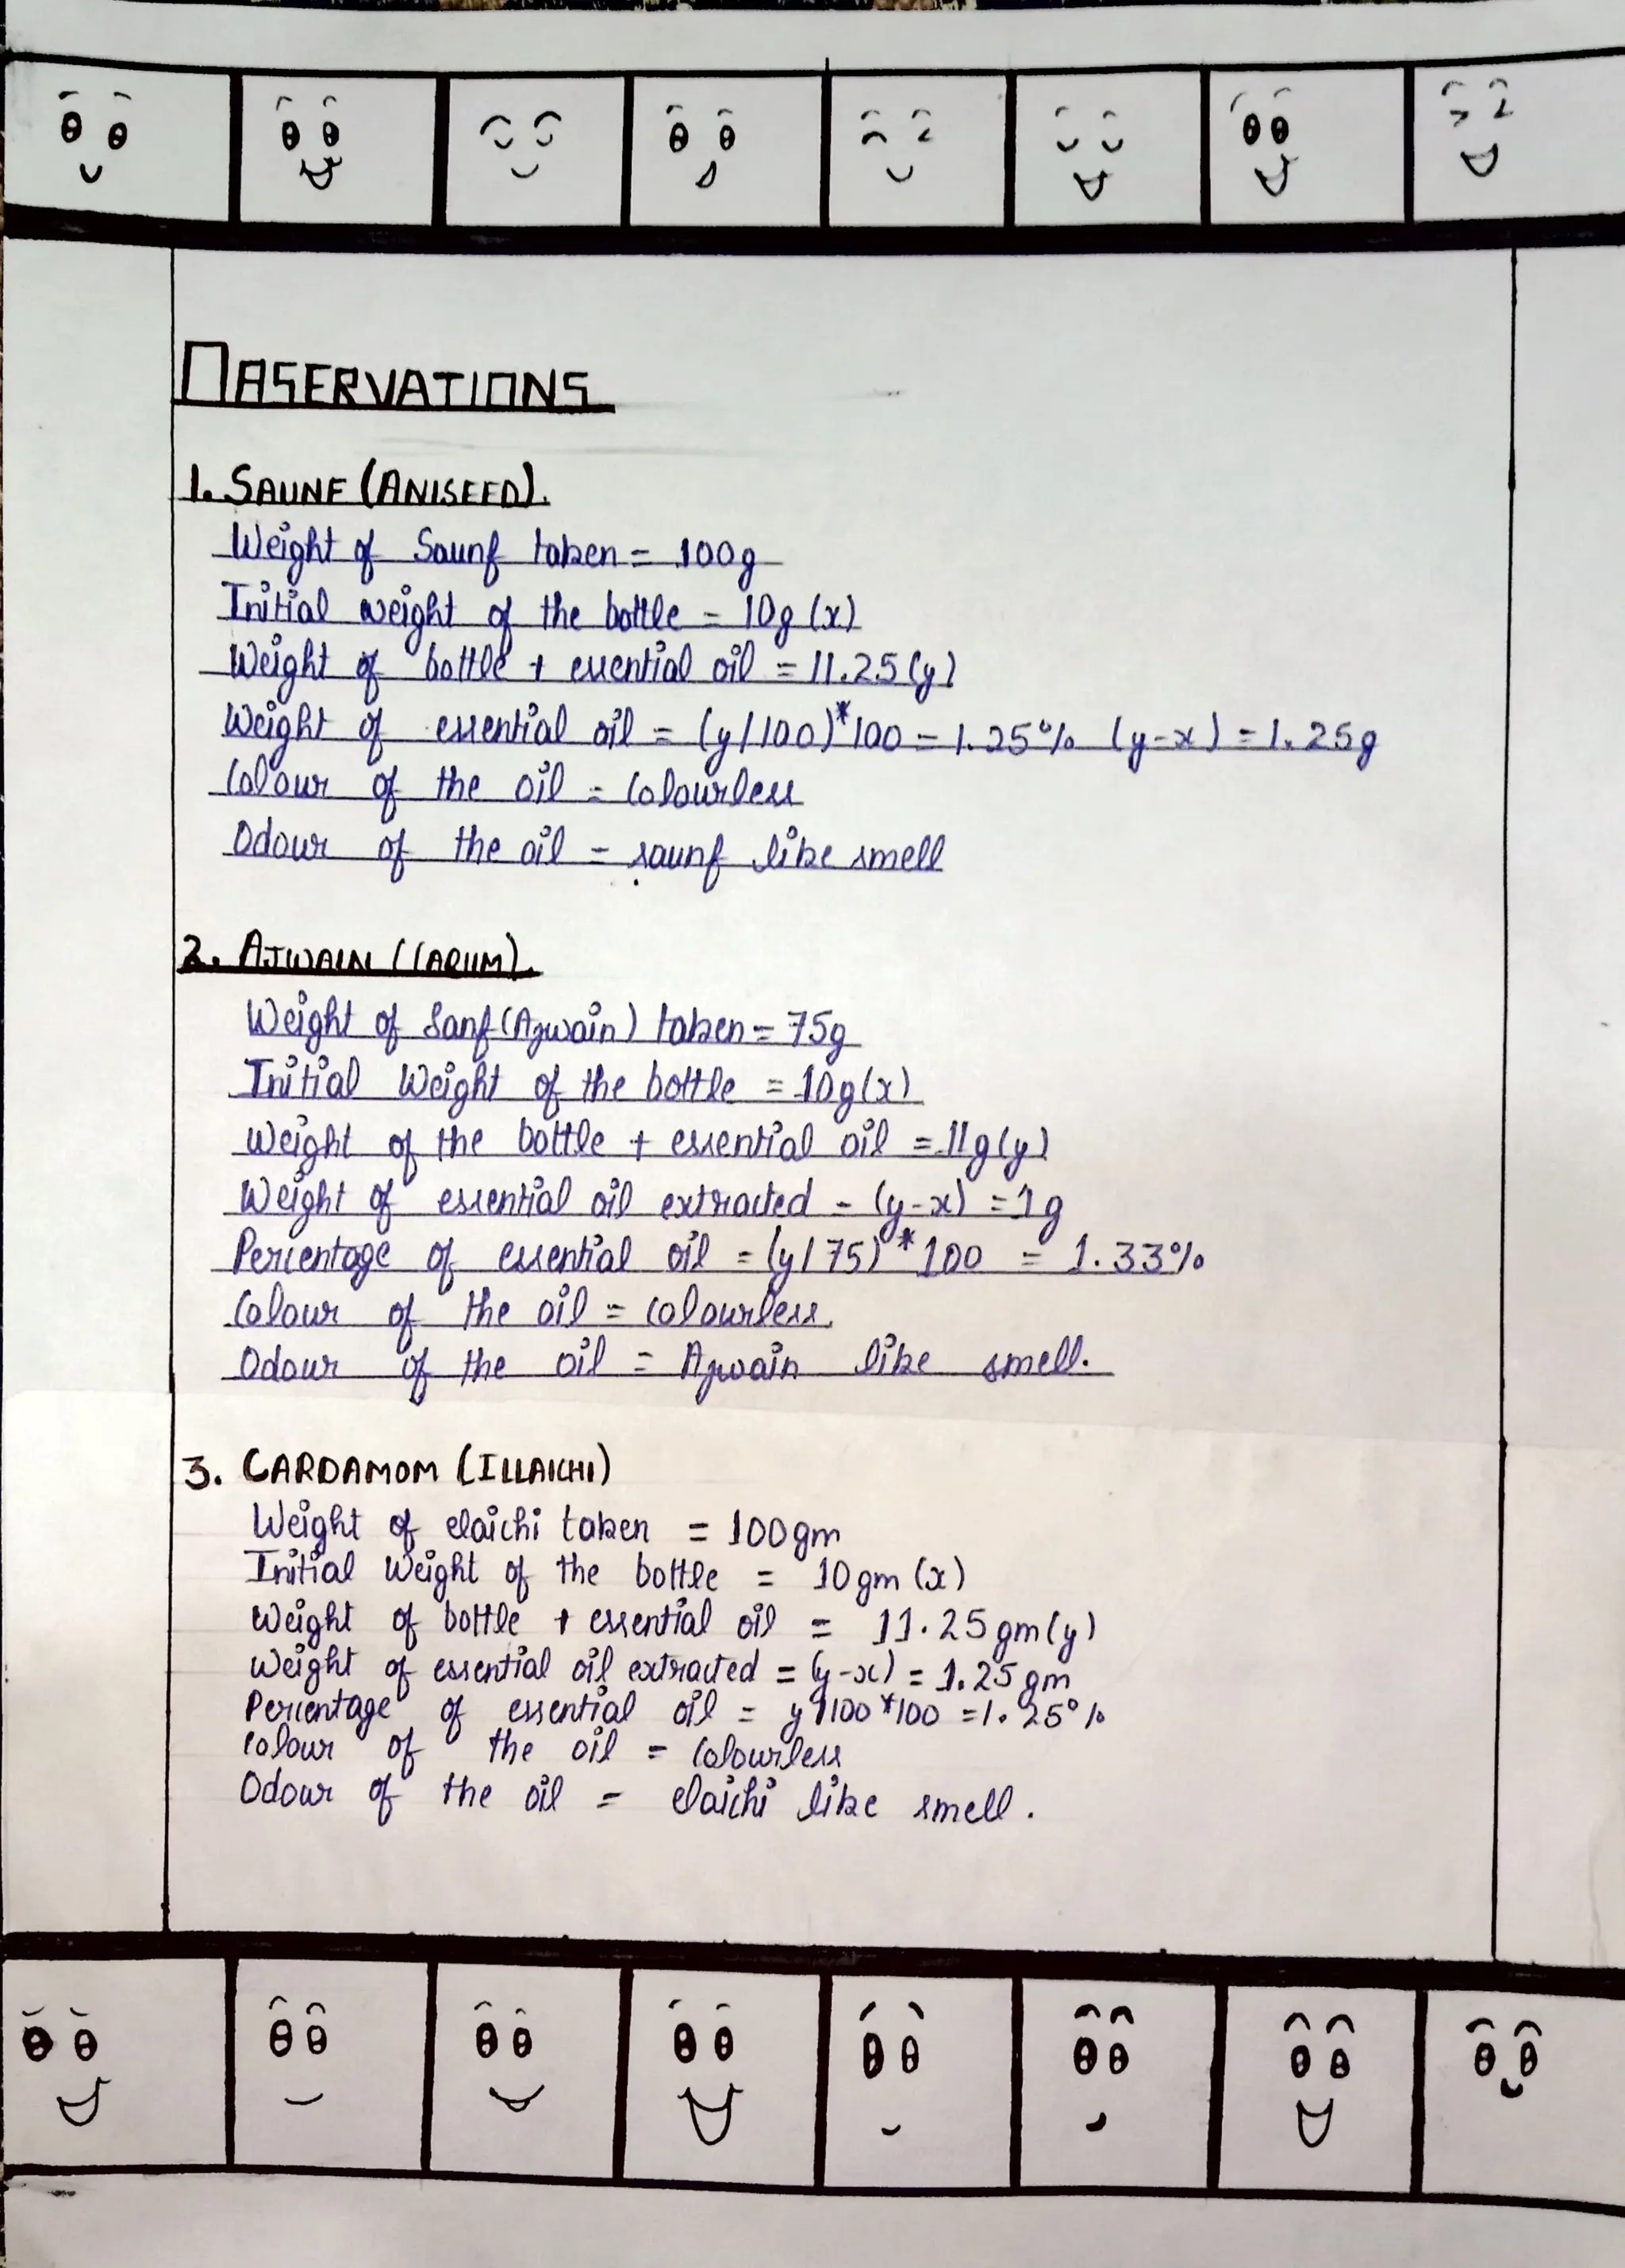 OBSERVATIONS
1. SAUNF (ANISEED).
Weight of Saunf taken = 100g
Initial weight of the bottle = 10g (x)
Weight of bottle + essential oil = 11.25 (y)
Weight of essential oil = (y/100)*100 = 1.25% (y-x) = 1.25g
Colour of the oil = Colourless
Odour of the oil = saunf like smell
2. AJWAIN (CARUM).
Weight of Sanf (Ajwain) taken = 75g
Initial Weight of the bottle = 10g(x)
Weight of the bottle + essential oil = 11g(y)
Weight of essential oil extracted - (y-x) = 1g
Percentage of essential oil = (y/75)*100 = 1.33%
Colour of the oil = colourless.
Odour of the oil = Ajwain like smell.
3. CARDAMOM (ILLAICHI)
Weight of elaichi taken = 100gm
Initial Weight of the bottle = 10gm (x)
Weight of bottle + essential oil = 11.25gm(y)
Weight of essential oil extracted = (y-x) = 1.25gm
Percentage of essential oil = y/100*100 = 1.25%
Colour of the oil = Colourless
Odour of the oil = elaichi like smell.